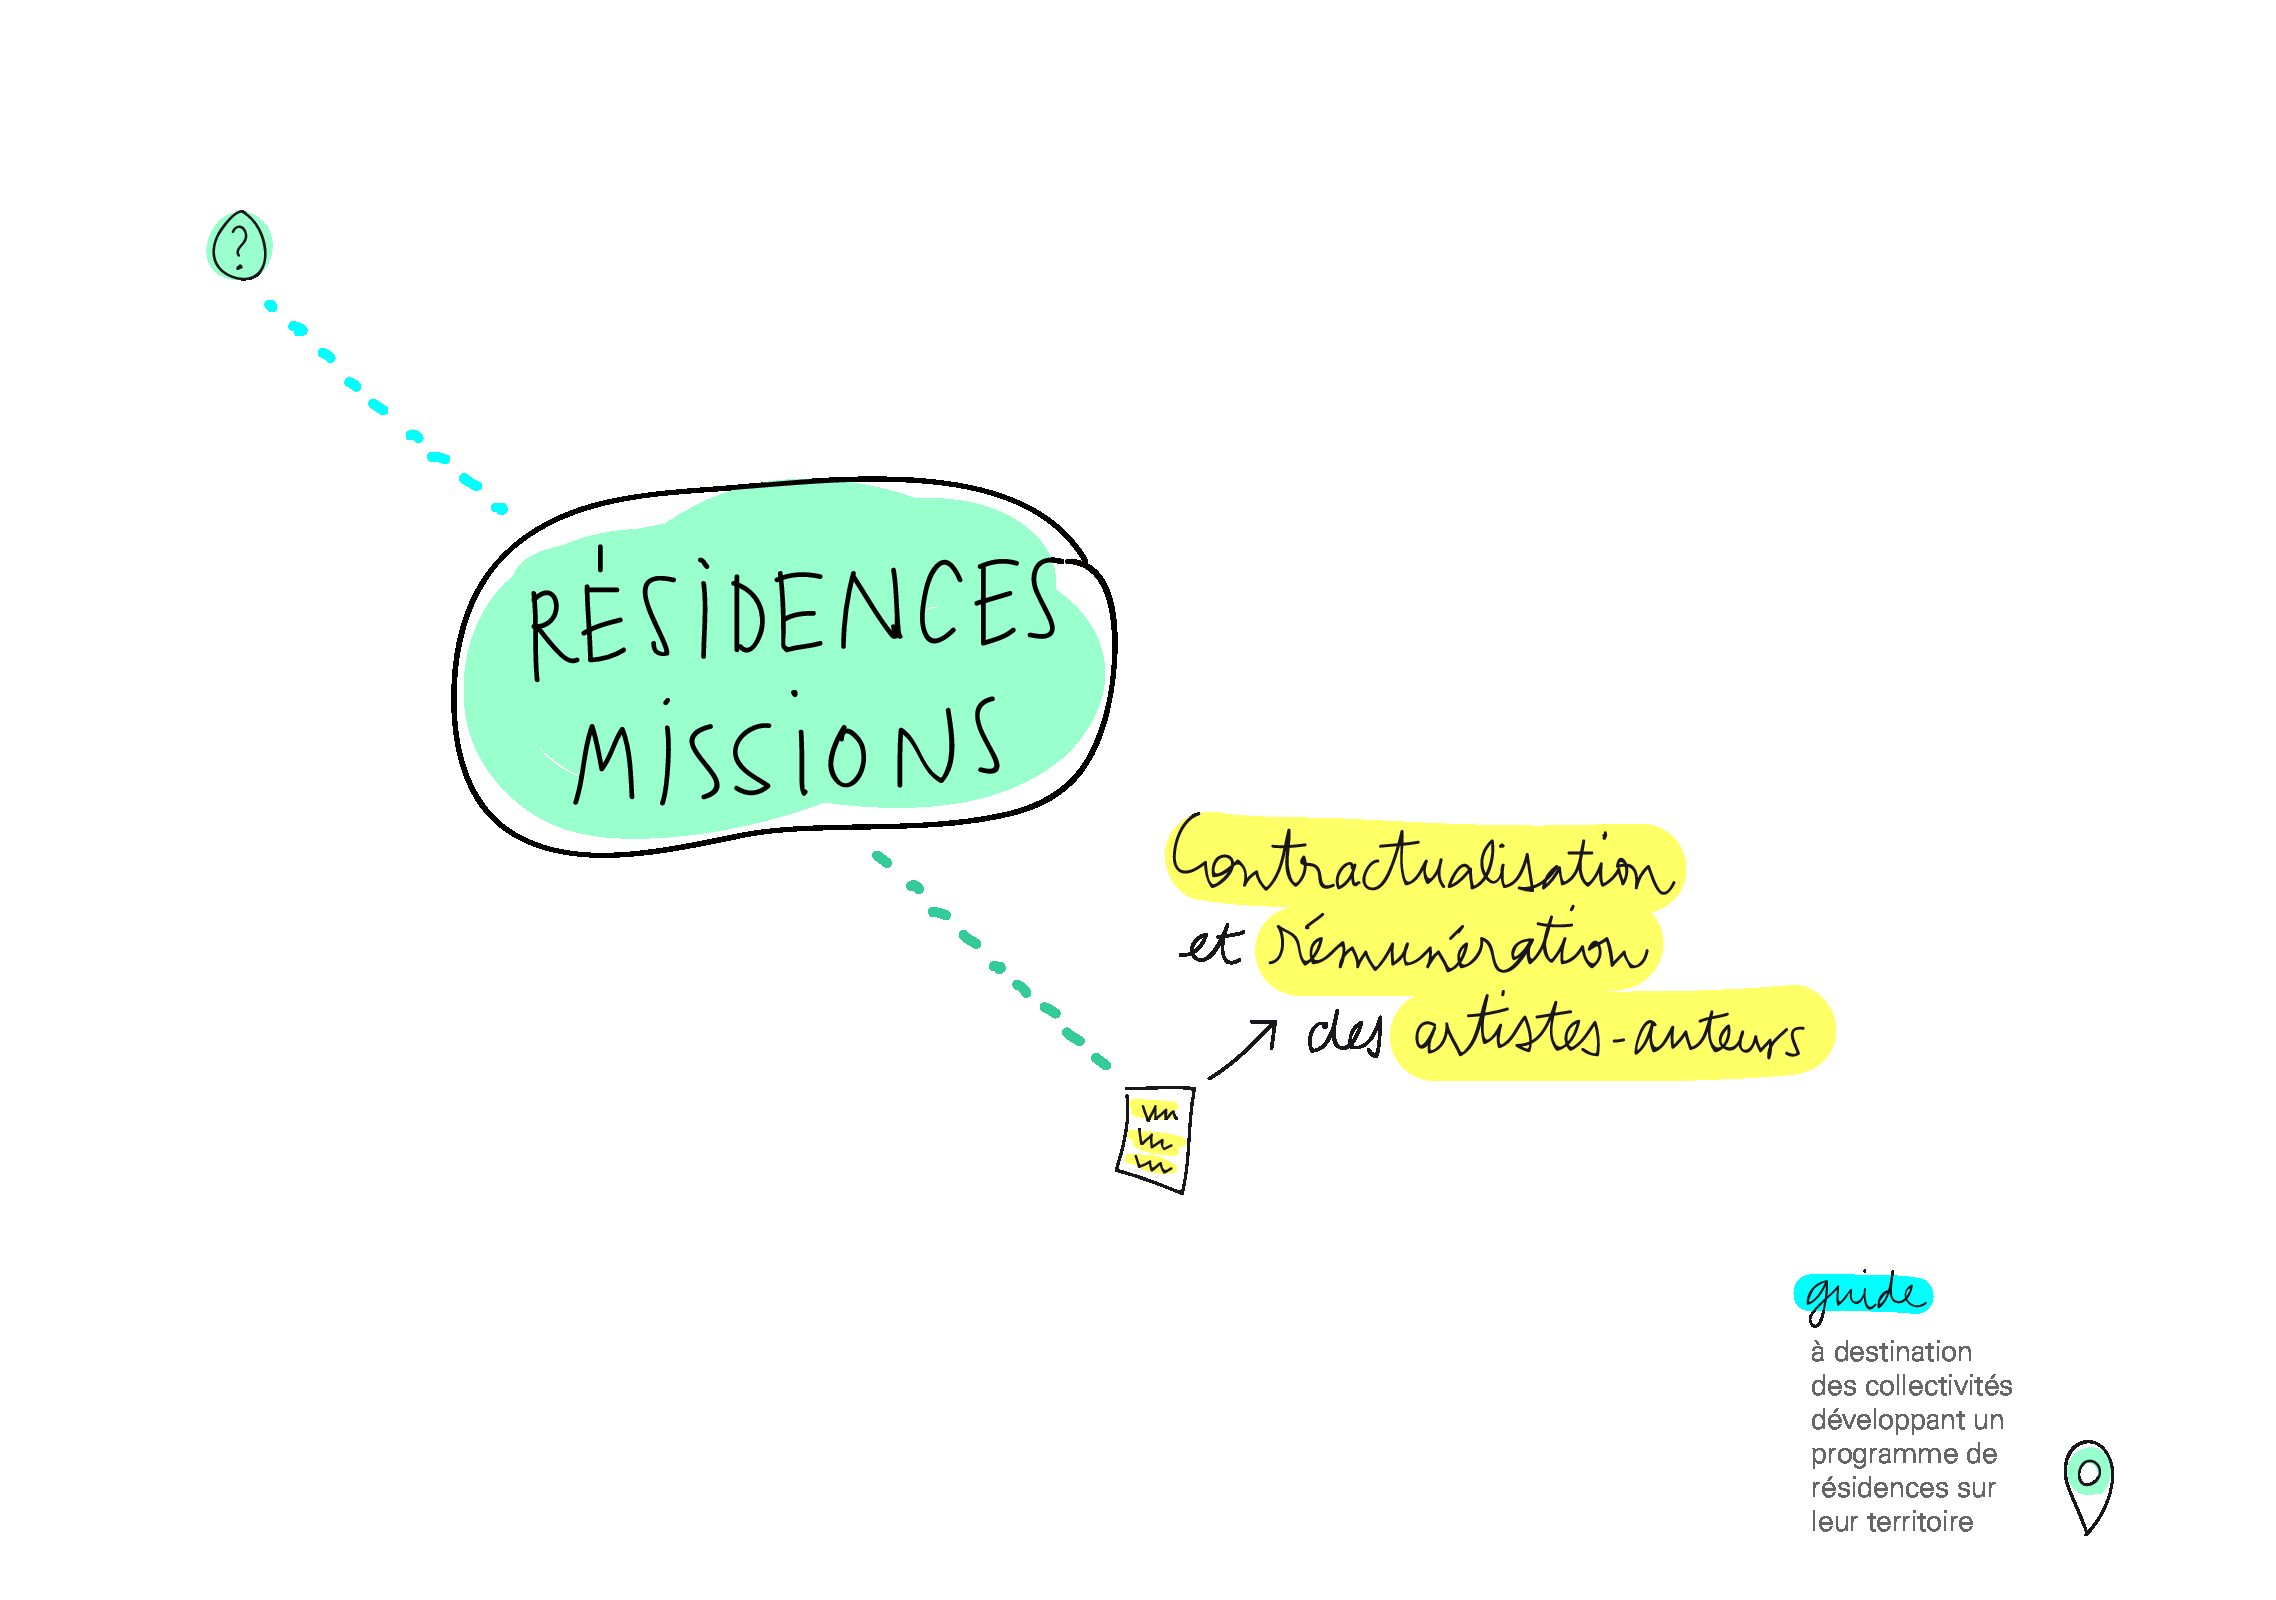 ?
RÉSIDENCES
MISSIONS
Contractualisation
et rémunération
des artistes-auteurs
guide
à destination
des collectivités
développant un
programme de
résidences sur
leur territoire